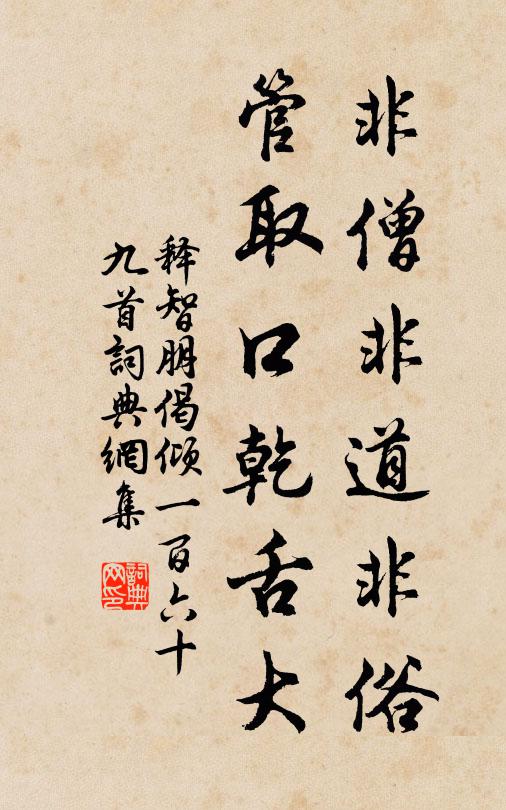 非僧非道非俗
管取口乾舌大
释智朋偈倾一百六十
九首詞典網集
詞典
网印